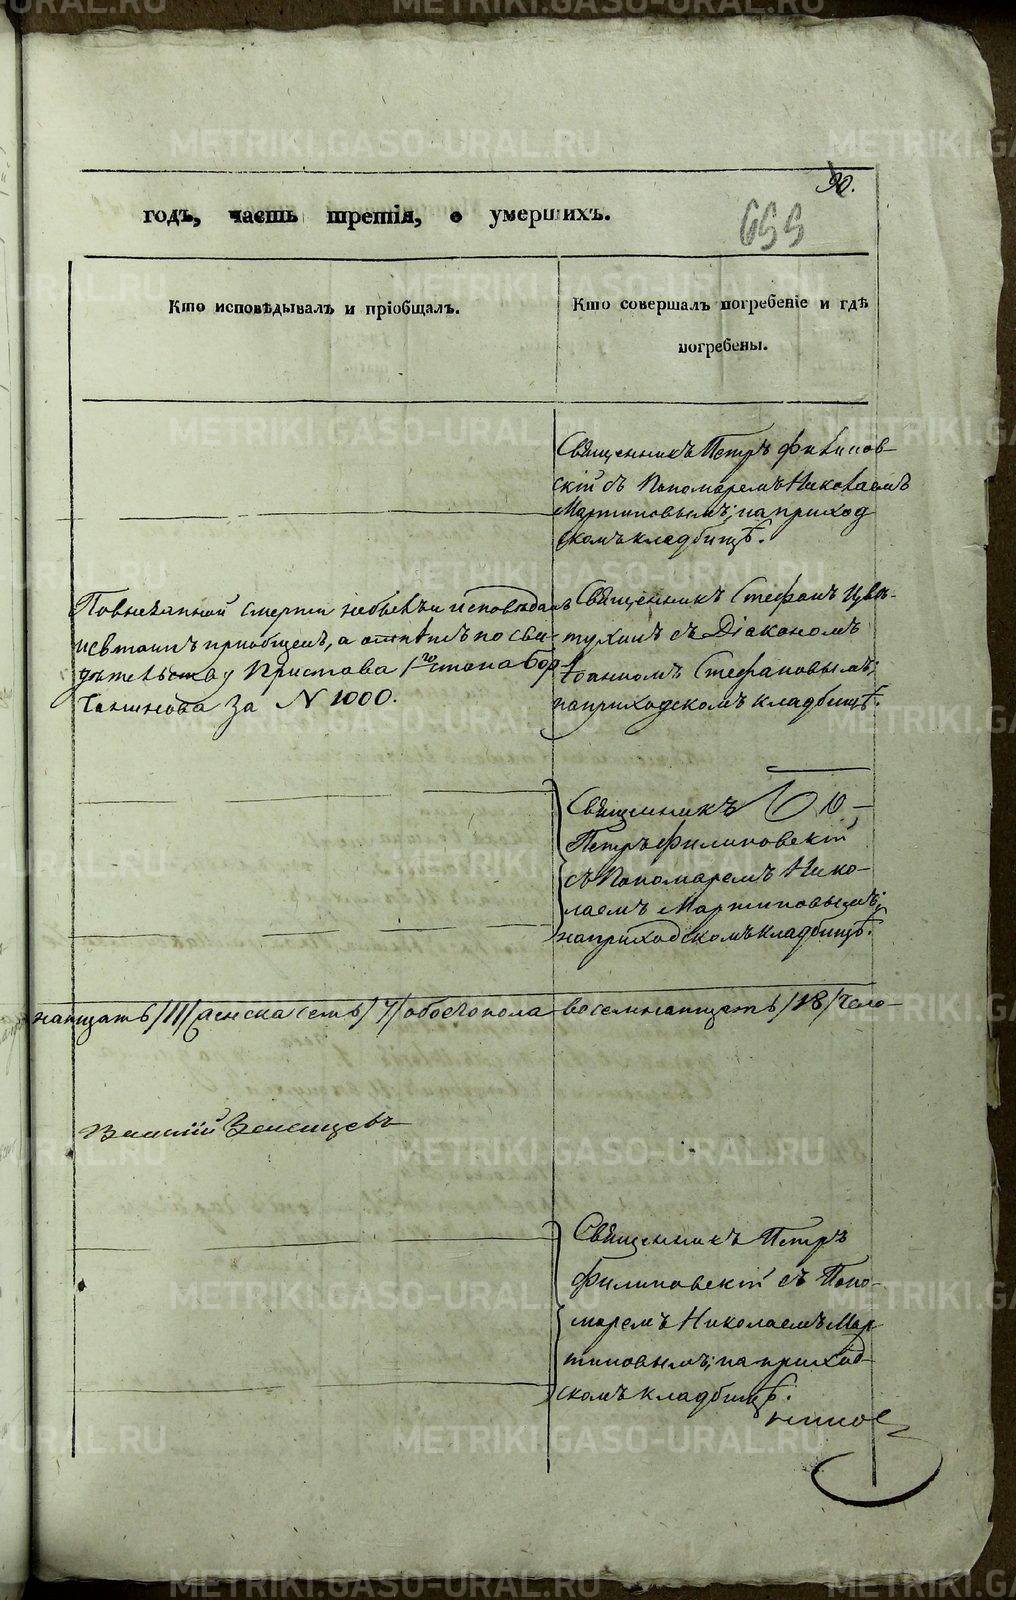 90.
655
годъ, часть третія, о умершихъ.
Кто исповѣдывалъ и пріобщалъ.
Кто совершалъ погребеніе и гдѣ
погребены.
Священникъ Петръ Филипов-
скій съ Пономаремъ Николаемъ
Мартиновымъ; на приход
скомъ кладбищѣ.
По внезапной смерти не былъ и исповѣданъ
и св. таинъ приобщенъ, а отпѣтъ по сви-
дѣтельству Пристава 1го стана
за N 1000.
Священникъ Стефанъ
съ Діакономъ
Іоанномъ Стефановымъ;
на приходскомъ кладбищѣ.
Священникъ
Петръ Филиповскій
съ Пономаремъ Нико-
лаемъ Мартиновымъ;
на приходскомъ кладбищѣ.
надцать /11/ женска семь /7/ обоего пола восемнатцать /18/ чело-
Василій
Священникъ Петръ
Филиповскій съ Поно-
маремъ Николаемъ Мар
тиновымъ; на приход-
скомъ кладбищѣ.
METRIKI.GASO-URAL.RU